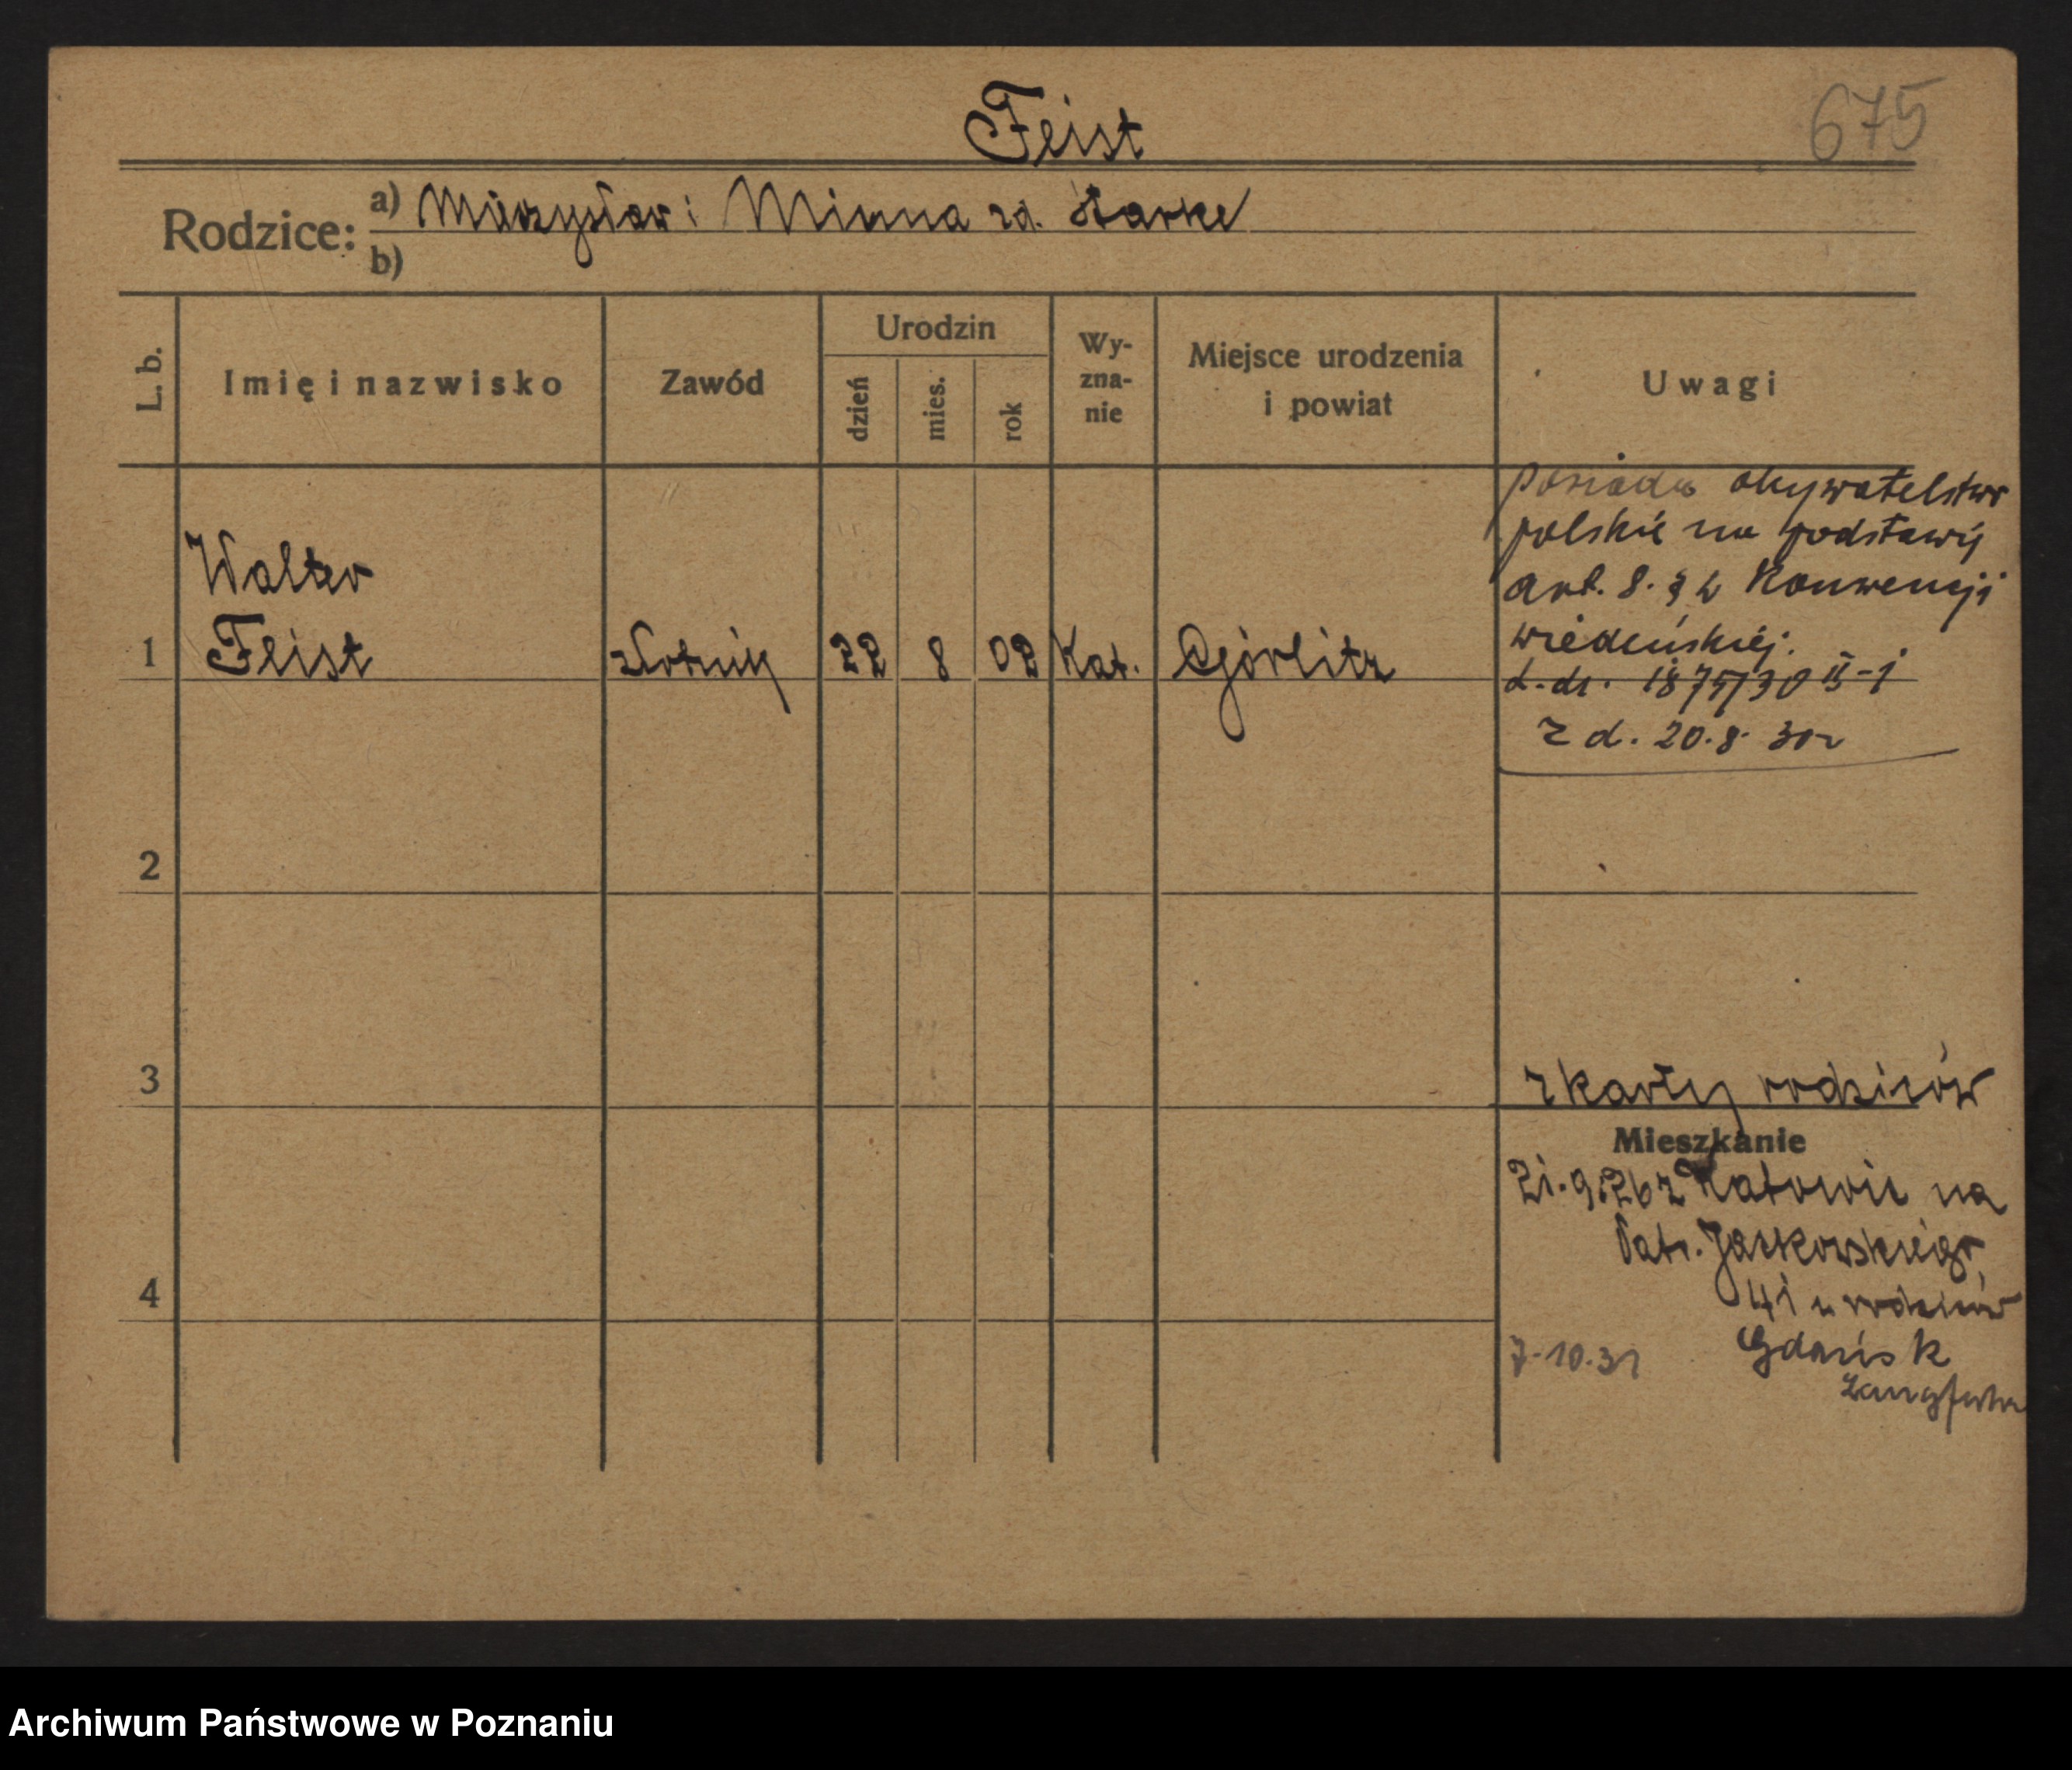 Feist
675
Rodzice: a) Mieczysław i Minna zd. Starke
b)
L. b.
Imię i nazwisko
Zawód
Urodzin
dzień
mies.
rok
Wy-
zna-
nie
Miejsce urodzenia
i powiat
Uwagi
posiada obywatelstwo
polskie na podstawie
art. 8. § 2 Konwencji
wiedeńskiej.
L. dz. 1875/30 II-1
z d. 20.8.30 r
Walter
1 Feist złotnik 22 8 02 Kat. Görlitz
2
3
z karty rodziców
Mieszkanie
21.9.26 z Katowic na
Jackowskiego
41 u rodziców
4
7.10.31 Gdańsk
Langfuhr
Archiwum Państwowe w Poznaniu